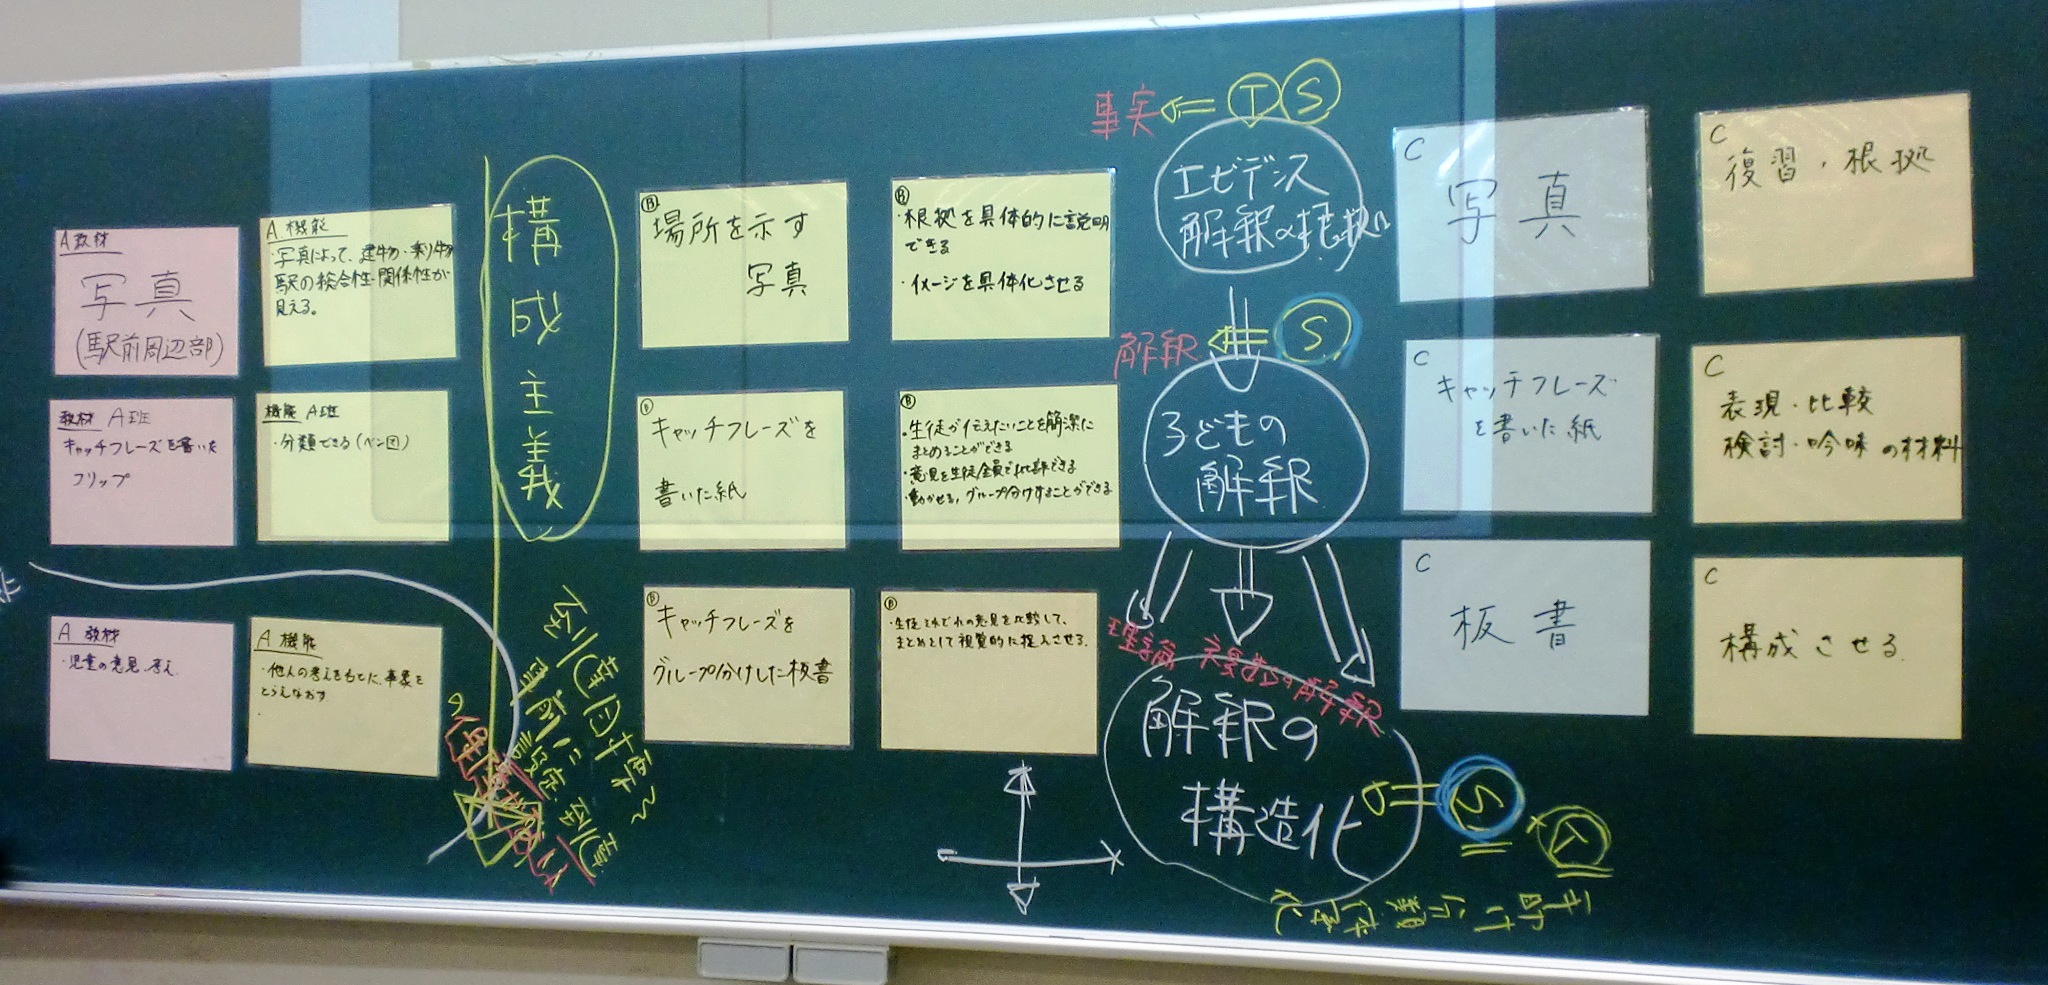 A 教材
写真
(駅前周辺部)
A 機能
・写真によって、建物・乗り物
駅の総合性・関係性が
見える。
教材 A班
キャッチフレーズを書いた
フリップ
機能 A班
・分類できる(ベン図)
A 教材
・児童の意見、考え
A 機能
・他人の考えをもとに、事象を
とらえなおす
構成主義
B
場所を示す
写真
B
・根拠を具体的に説明
できる
・イメージを具体化させる
B
キャッチフレーズを
書いた紙
B
・生徒が伝えたいことを簡潔に
まとめることができる
・意見を生徒全員で共有できる
・動かせる,グループ分けすることができる
B
キャッチフレーズを
グループ分けした板書
B
・生徒それぞれの意見を比較して、
まとめとして視覚的に捉えさせる。
事実
T S
エビデンス
解釈の根拠
解釈
S
子どもの
解釈
理論
の解釈
解釈の
構造化
S
T
手助け
分類
C
写真
C
復習・根拠
C
キャッチフレーズ
を書いた紙
C
表現・比較
検討・吟味の材料
C
板書
C
構成させる